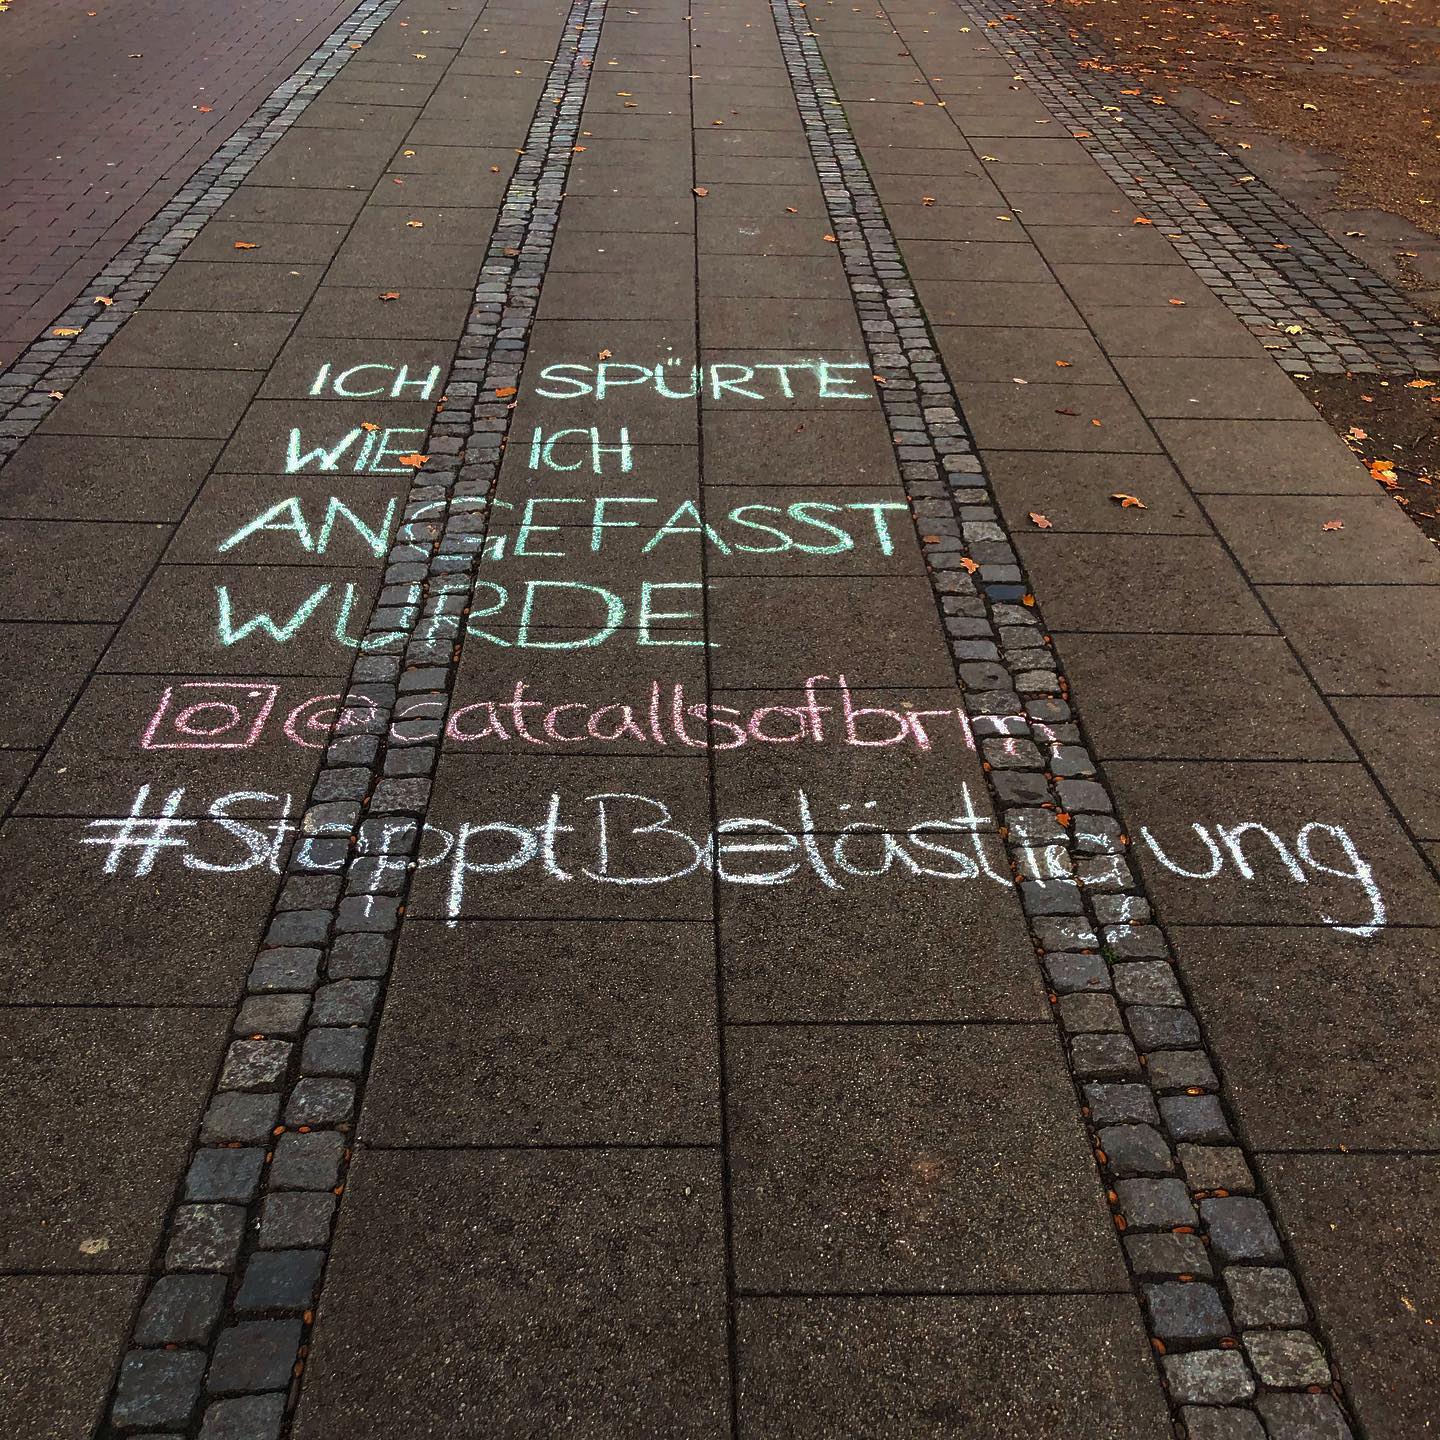 ICH SPÜRTE
WIE ICH
ANGEFASST
WURDE
@catcallsofbrm
#StopptBelästigung